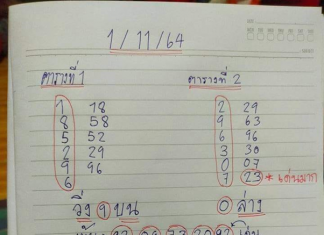 1/11/64
ตารางที่ 1 ตารางที่ 2
1 18 2 29
8 58 9 63
5 52 6 96
2 29 3 30
9 96 0 07
6 7 23 * เด่นมาก
วิ่ง 9 บน 0 ล่าง